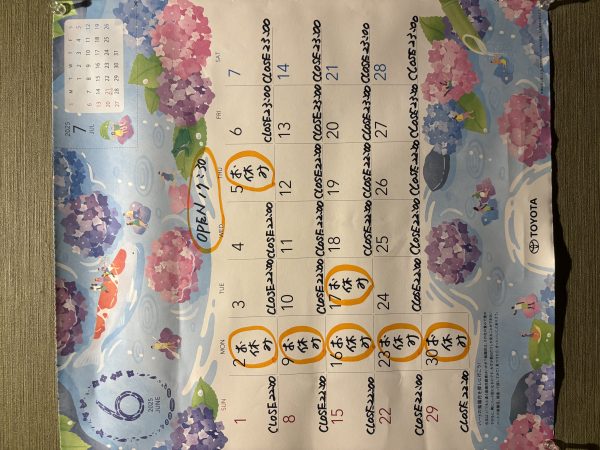 6
2025
JUNE
2025
7
JUL
S M T W T F S
1 2 3 4 5
6 7 8 9 10 11 12
13 14 15 16 17 18 19
20 21 22 23 24 25 26
27 28 29 30 31
OPEN 17:30
SUN MON TUE WED THU FRI SAT
1 2 3 4 5 6 7
CLOSE 22:00 お休み CLOSE 22:00 CLOSE 22:00 お休み CLOSE 23:00 CLOSE 23:00
8 9 10 11 12 13 14
CLOSE 22:00 お休み CLOSE 22:00 CLOSE 22:00 CLOSE 22:00 CLOSE 23:00 CLOSE 23:00
15 16 17 18 19 20 21
CLOSE 22:00 お休み お休み CLOSE 22:00 CLOSE 22:00 CLOSE 23:00 CLOSE 23:00
22 23 24 25 26 27 28
CLOSE 22:00 お休み CLOSE 22:00 CLOSE 22:00 CLOSE 22:00 CLOSE 23:00 CLOSE 23:00
29 30
CLOSE 22:00 お休み
TOYOTA